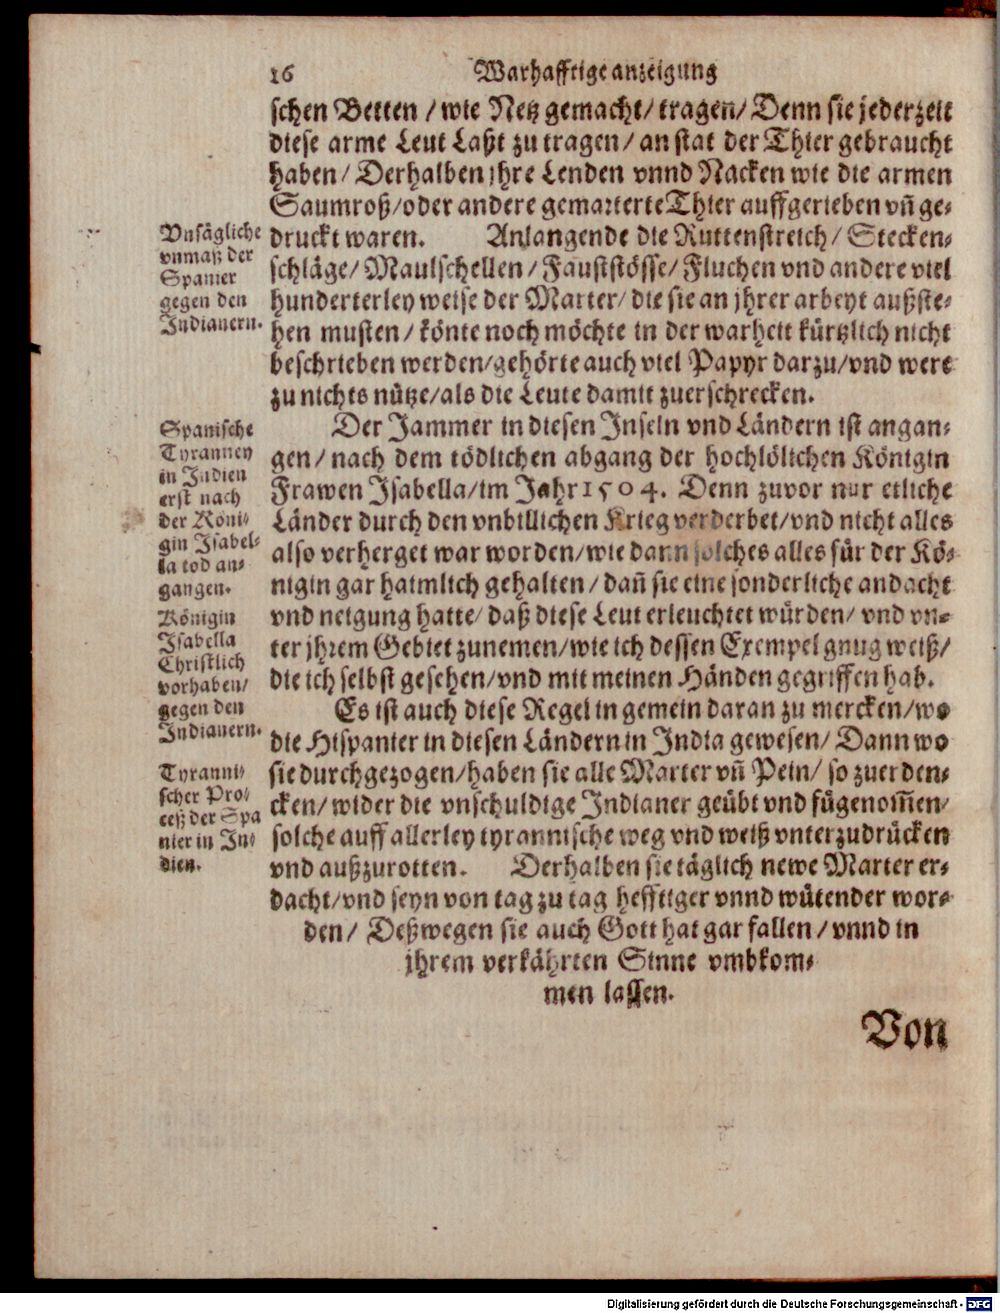 16 Warhafftige anzeigung
schen Betten / wie Netz gemacht / tragen / Denn sie jederzeit
diese arme Leut Laßt zu tragen / an stat der Thier gebraucht
haben / Derhalben jhre Lenden vnnd Nacken wie die armen
Saumroß / oder andere gemarterte Thier auffgerieben vñ ge-
druckt waren. Anlangende die Ruttenstreich / Stecken-
schläge / Maulschellen / Fauststösse / Fluchen vnd andere viel
hunderterley weise der Marter / die sie an jhrer arbeyt außste-
hen musten / könte noch möchte in der warheit kürtzlich nicht
beschrieben werden / gehörte auch viel Papyr darzu / vnd were
zu nichts nütze / als die Leute damit zuerschrecken.
Der Jammer in diesen Inseln vnd Ländern ist angan-
gen / nach dem tödlichen abgang der hochlölichen Königin
Frawen Isabella / im Jahr 1504. Denn zuvor nur etliche
Länder durch den vnbillichen Krieg verderbet / vnd nicht alles
also verherget war worden / wie dann solches alles für der Kö-
nigin gar haimlich gehalten / dañ sie eine sonderliche andacht
vnd neigung hatte / daß diese Leut erleuchtet würden / vnd vn-
ter jhrem Gebiet zunemen / wie ich dessen Exempel gnug weiß /
die ich selbst gesehen / vnd mit meinen Händen gegriffen hab.
Es ist auch diese Regel in gemein daran zu mercken / wo
die Hispanier in diesen Ländern in India gewesen / Dann wo
sie durchgezogen / haben sie alle Marter vñ Pein / so zuerden-
cken / wider die vnschuldige Indianer geübt vnd fügenom̃en /
solche auff allerley tyrannische weg vnd weiß vnterzudrücken
vnd außzurotten. Derhalben sie täglich newe Marter er-
dacht / vnd seyn von tag zu tag hefftiger vnnd wütender wor-
den / Deßwegen sie auch Gott hat gar fallen / vnnd in
jhrem verkährten Sinne vmbkom-
men lassen.
Von
Vnsägliche
vnmaß der
Spanier
gegen den
Indianern.
Spanische
Tyranney
in Indien
erst nach
der Köni-
gin Isabel-
la tod an-
gangen.
Königin
Isabella
Christlich
vorhaben /
gegen den
Indianern.
Tyranni-
scher Pro-
ceß der Spa
nier in In-
dien.
Digitalisierung gefördert durch die Deutsche Forschungsgemeinschaft - DFG